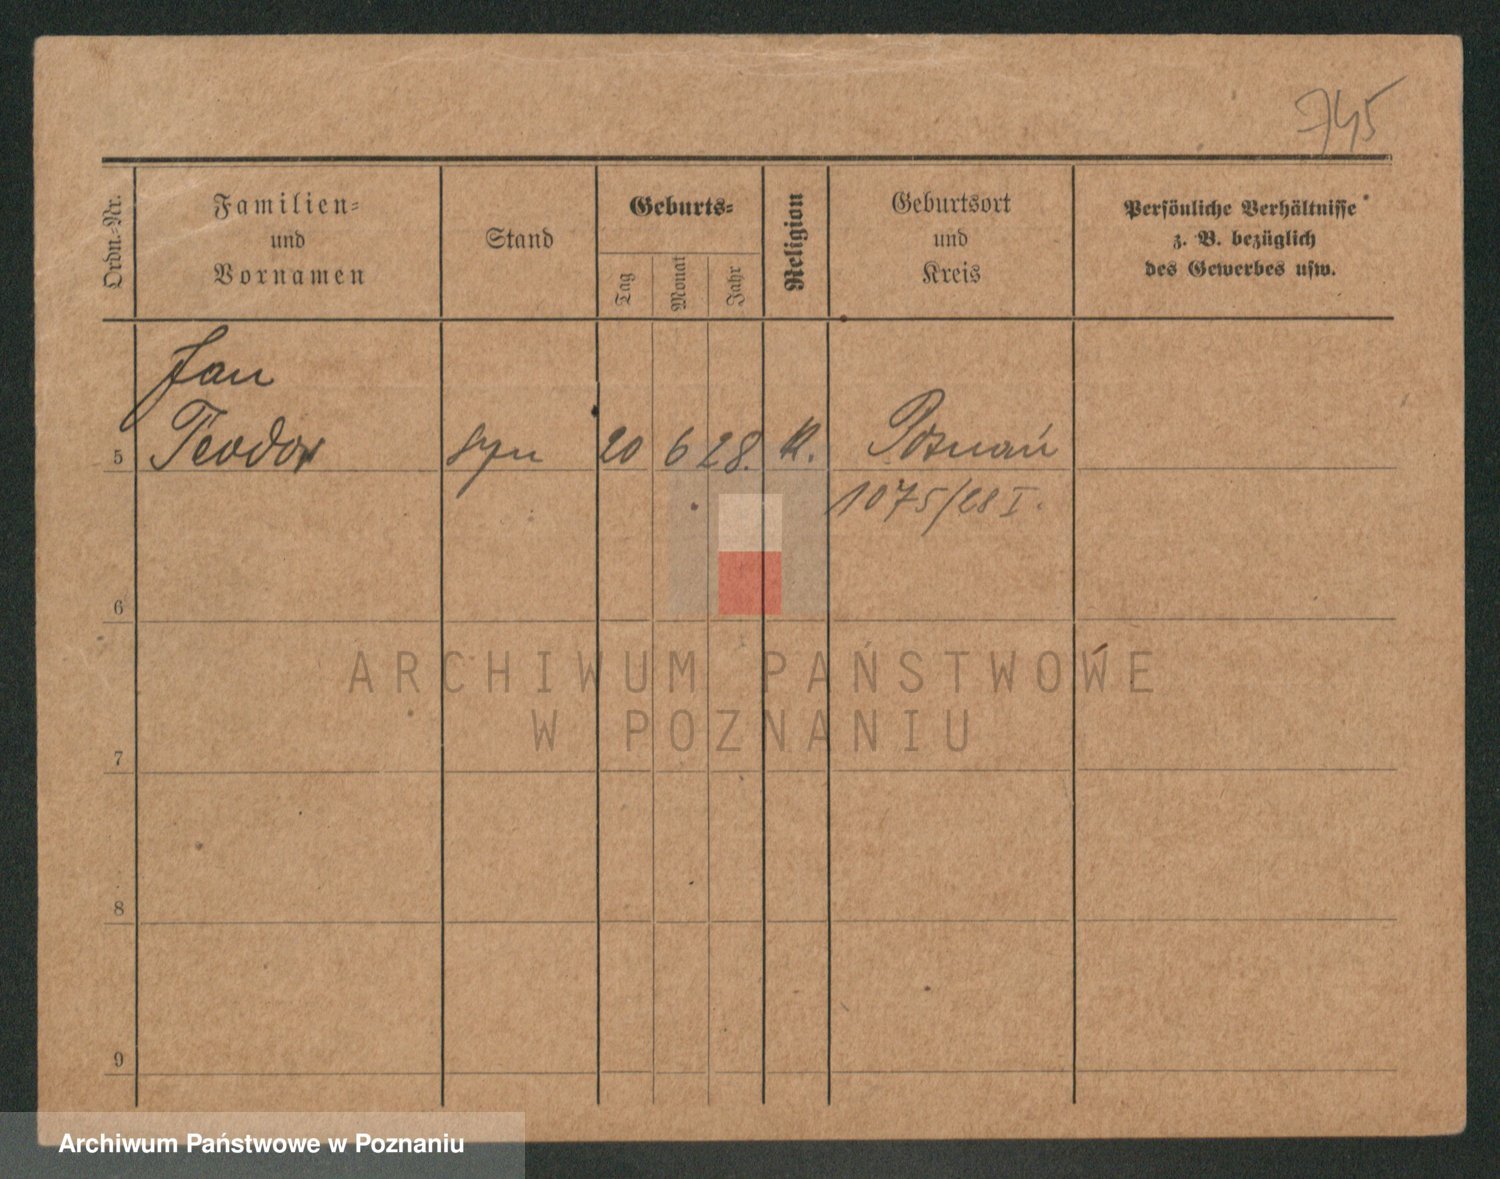 745
Ordn.-Nr.
Familien-
und
Vornamen
Stand
Geburts-
Tag
Monat
Jahr
Religion
Geburtsort
und
Kreis
Persönliche Verhältnisse
z. B. bezüglich
des Gewerbes usw.
Jan
5 Teodor syn 20 6 28. K. Poznań
1075/28 I.
6
ARCHIWUM PAŃSTWOWE
W POZNANIU
7
8
9
Archiwum Państwowe w Poznaniu